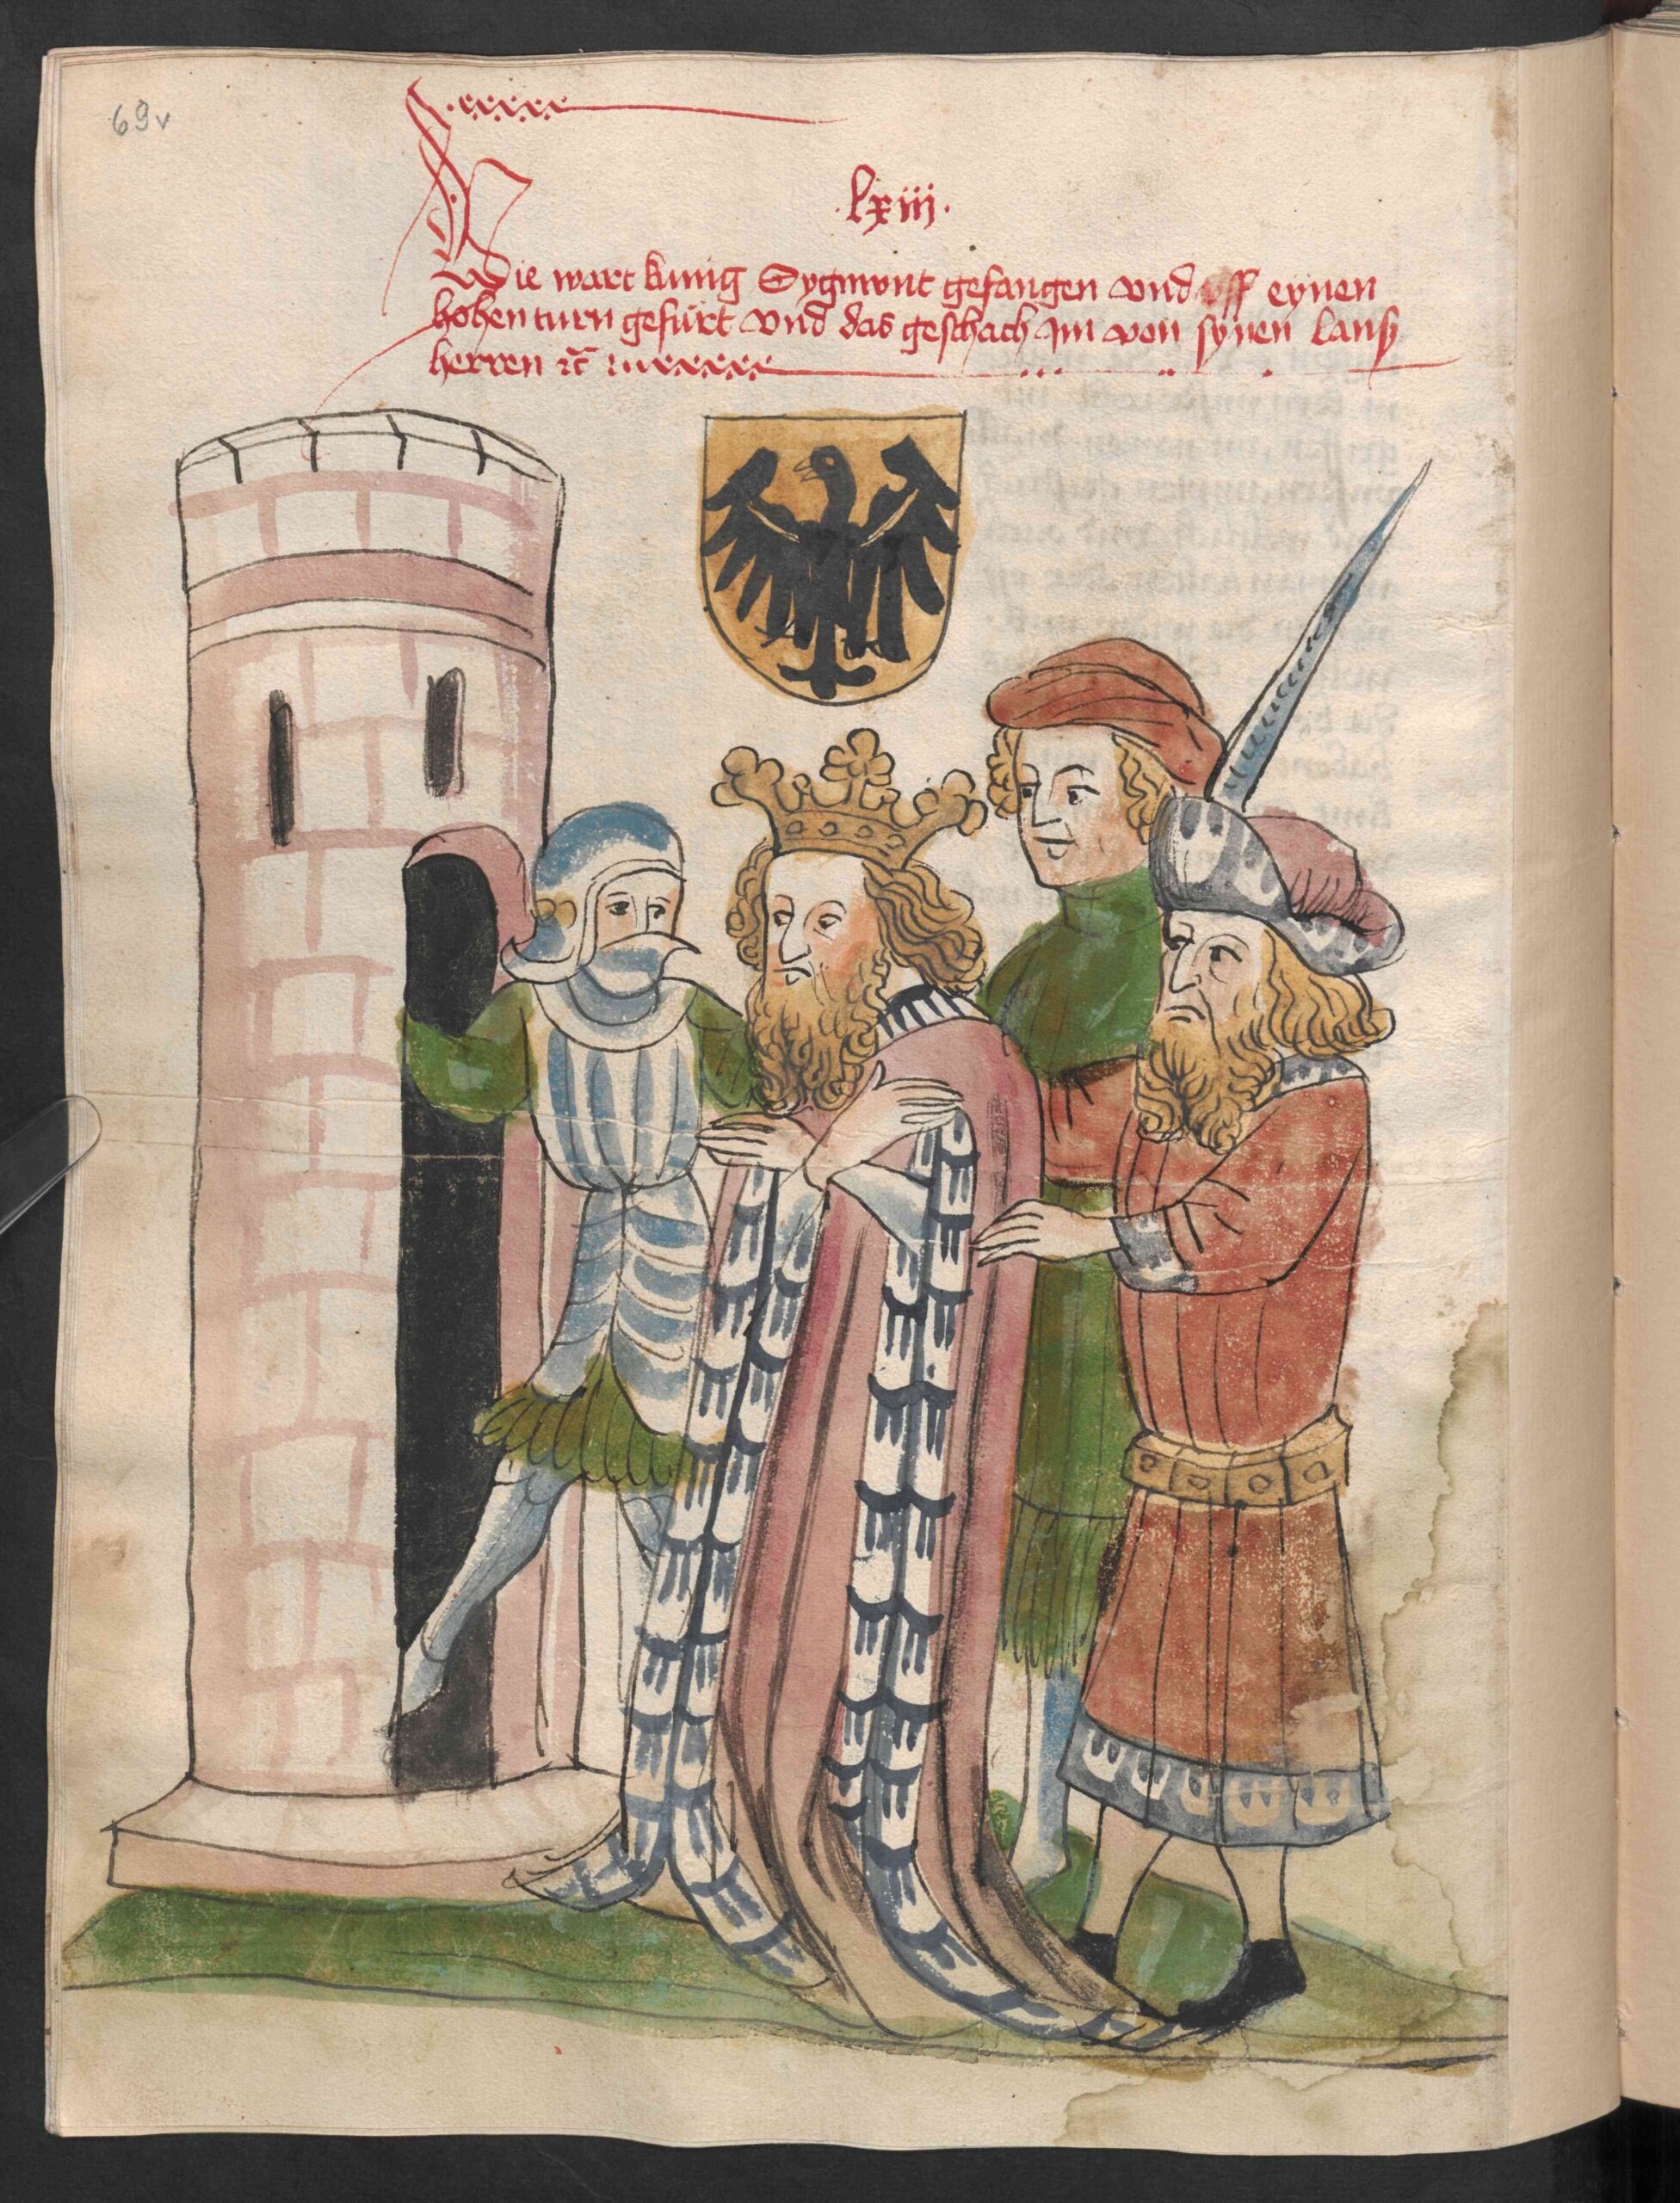 69v
·lxiii·
Hie wart kunig Sygmont gefangen vnd vff eynen
hohen turn gefürt vnd das geschach jm von synen lantz
herren ꝛc̄